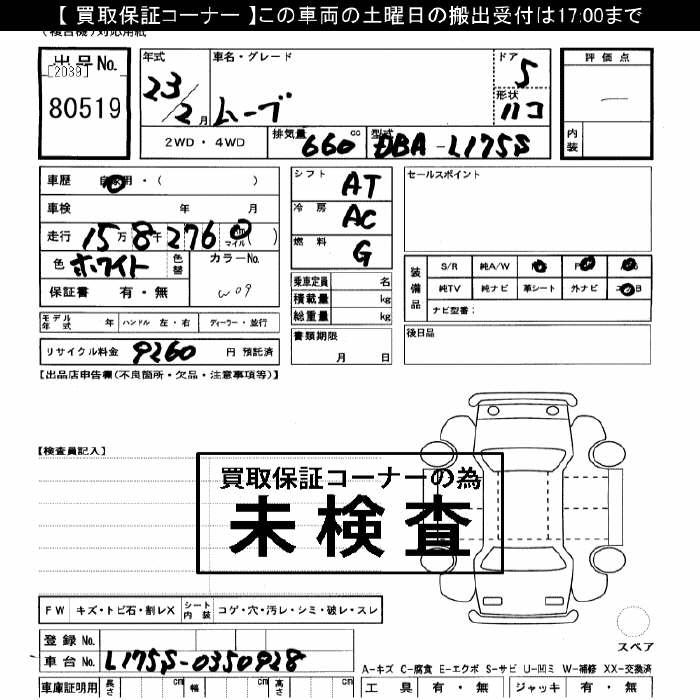 【 買取保証コーナー 】この車両の土曜日の搬出受付は17:00まで
出品No.
[2039]
80519
年式
23/2月
車名・グレード
ムーブ
ドア
5
形状
ハコ
評価点
内装
2WD・4WD
排気量 660 cc
型式 DBA-L175S
車歴 自家用・( )
車検 年 月
走行 15万8千276 マイル( )
色 ホワイト
色替
カラーNo.
W09
保証書 有・無
シフト AT
冷房 AC
燃料 G
乗車定員 名
積載量 kg
総重量 kg
書類期限
月 日
セールスポイント
装備品
S/R 純A/W
純TV 純ナビ 革シート 外ナビ
ナビ型番:
後日品
モデル年式 年 ハンドル 左・右 ディーラー・並行
リサイクル料金 9260 円 預託済
【出品店申告欄(不良箇所・欠品・注意事項等)】
【検査員記入】
買取保証コーナーの為
未検査
FW キズ・トビ石・割レX シート内装 コゲ・穴・汚レ・シミ・破レ・スレ
登録No.
車台No. L175S-0350928
スペア
A-キズ C-腐食 E-エクボ S-サビ U-凹ミ W-補修 XX-交換済
車庫証明用 長さ cm 幅 cm 高さ cm
工具 有・無 ジャッキ 有・無